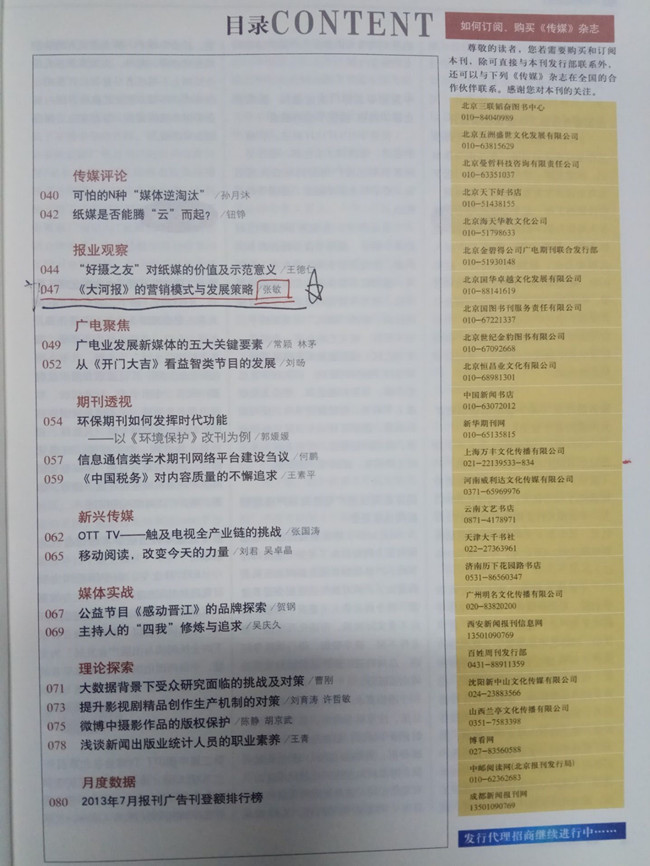 目录CONTENT
传媒评论
040 可怕的N种“媒体逆淘汰” /孙月沐
042 纸媒是否能腾“云”而起? /钮铮
报业观察
044 “好摄之友”对纸媒的价值及示范意义 /王德仁
047 《大河报》的营销模式与发展策略 /张敏
广电聚焦
049 广电业发展新媒体的五大关键要素 /常颖 林茅
052 从《开门大吉》看益智类节目的发展 /刘旸
期刊透视
054 环保期刊如何发挥时代功能
——以《环境保护》改刊为例 /郭媛媛
057 信息通信类学术期刊网络平台建设刍议 /何鹏
059 《中国税务》对内容质量的不懈追求 /王素平
新兴传媒
062 OTT TV——触及电视全产业链的挑战 /张国涛
065 移动阅读,改变今天的力量 /刘君 吴卓晶
媒体实战
067 公益节目《感动晋江》的品牌探索 /贺钢
069 主持人的“四我”修炼与追求 /吴庆久
理论探索
071 大数据背景下受众研究面临的挑战及对策 /曹刚
073 提升影视剧精品创作生产机制的对策 /刘育涛 许哲敏
075 微博中摄影作品的版权保护 /陈静 胡京武
078 浅谈新闻出版业统计人员的职业素养 /王青
月度数据
080 2013年7月报刊广告刊登额排行榜
如何订阅、购买《传媒》杂志
尊敬的读者,您若需要购买和订阅
本刊、除可直接与本刊发行部联系外,
还可以与下列《传媒》杂志在全国的合
作伙伴联系。感谢您对本刊的关注。
北京三联韬奋图书中心
010-84040989
北京五洲盛世文化发展有限公司
010-63815629
北京曼哲科技咨询有限责任公司
010-63351037
北京天下好书店
010-51438155
北京海天华教文化公司
010-51798633
北京金碧得公司广电期刊联合发行部
010-51930148
北京国华卓越文化发展有限公司
010-88141619
北京国图书刊服务责任有限公司
010-67221337
北京世纪金豹图书有限公司
010-67092668
北京恒昌业文化有限公司
010-68981301
中国新闻书店
010-63072012
新华期刊网
010-65135815
上海万丰文化传播有限公司
021-22139533-834
河南威利达文化传媒有限公司
0371-65969976
云南文艺书店
0871-4178971
天津大千书社
022-27363961
济南历下花园路书店
0531-86560347
广州明名文化传播有限公司
020-83820200
西安新闻报刊信息网
13501090769
百姓周刊发行部
0431-88911359
沈阳新中山文化传媒有限公司
024-23883566
山西兰亭文化传播有限公司
0351-7583398
博看网
027-83560588
中邮阅读网(北京报刊发行局)
010-62362683
成都新闻报刊网
13501090769
发行代理招商继续进行中……